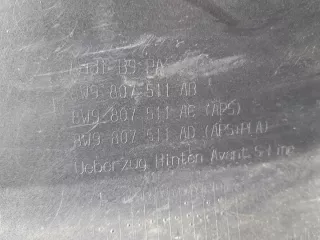 8W9 807 511 AB
8W9 807 511 AC (APS)
8W9 807 511 AD (APS+PLA)
Ueberzug Hinten Avant S-Line